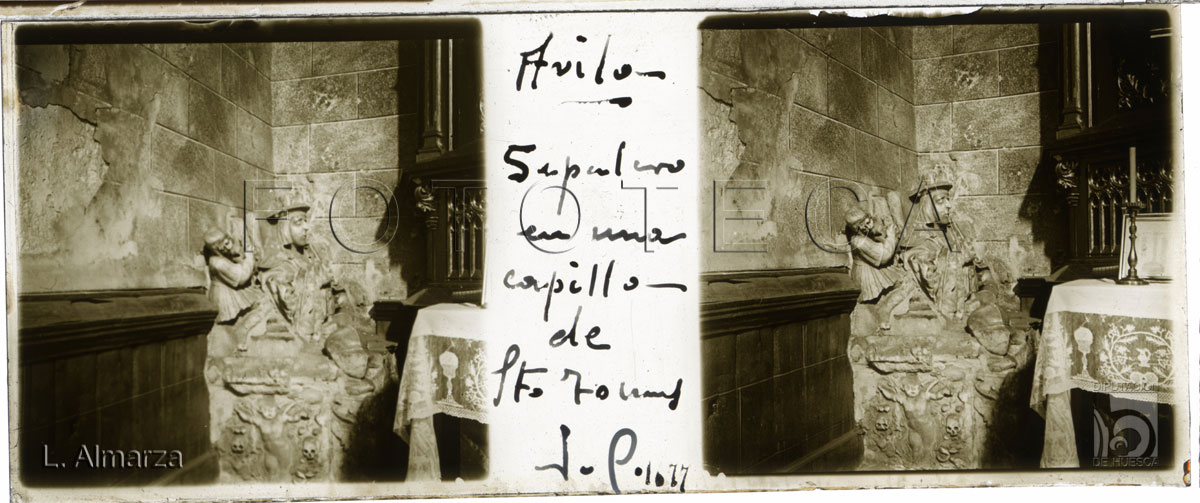 Avila
Sepulcro
en una
capilla
de
Sto Tomas
FOTOTECA
L. Almarza
DIPUTACIÓN
DE HUESCA